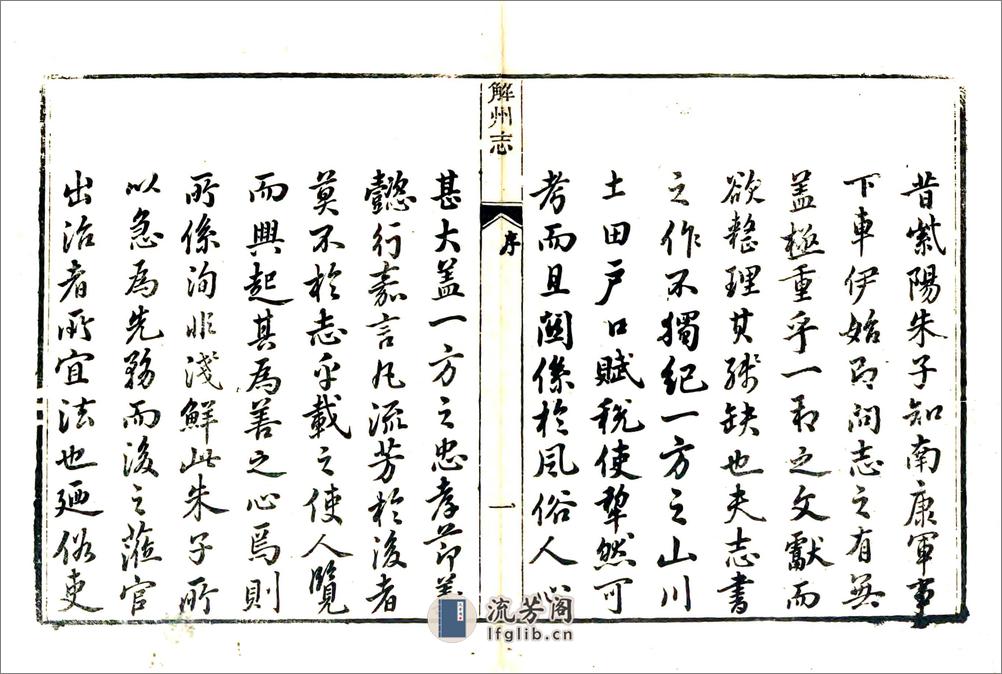 昔紫陽朱子知南康軍事
下車伊始即問志之有無
盖極重乎一邦之文獻而
欲整理其殘缺也夫志書
之作不獨紀一方之山川
土田户口賦税使犂然可
考而且關係於風俗人心
解州志
序
一
甚大盖一方之忠孝節義
懿行嘉言凡流芳於後者
莫不於志乎載之使人覽
而興起其為善之心焉則
所係洵非淺鮮此朱子所
以急為先務而後之蒞官
出治者所宜法也廼俗吏
流芳阁
lfglib.cn